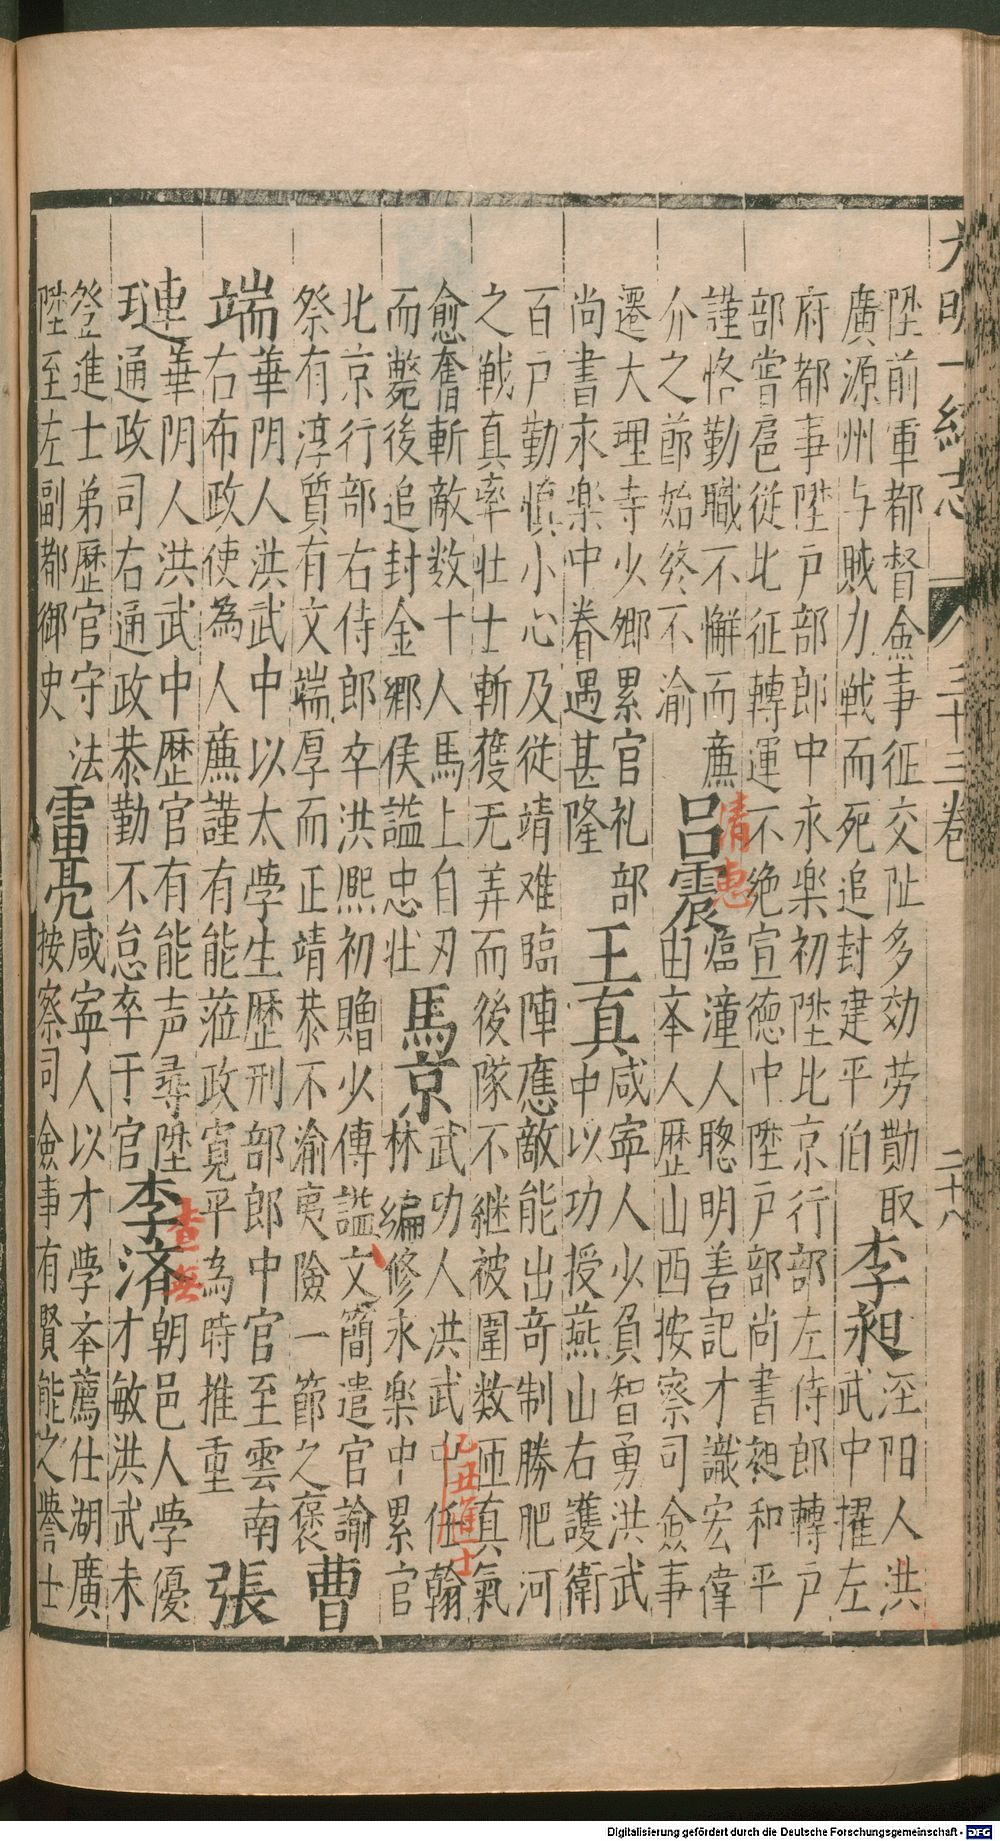 大明一統志 八三十三卷 二十八
陞前軍都督僉事征交阯多効劳勛取
廣源州与賊力戦而死追封建平伯
李昶
泾阳人洪
武中擢左
府都事陞户部郎中永楽初陞比京行部左侍郎轉户
部嘗扈從比征轉運不绝宣徳中陞户部尚書昶和平
謹恪勤職不懈而廉
介之莭始终不渝
清惠
吕震
臨潼人聡明善記才識宏偉
由夲人歴山西按察司僉事
遷大理寺少卿累官礼部
尚書永楽中眷遇甚隆
王真
咸寕人少負智勇洪武
中以功授燕山右護衛
百户勤慎小心及従靖难臨陣應敵能出竒制勝肥河
之戦真率壮士斬獲无弄而後隊不継被圍数匝真氣
愈奮斬敵数十人馬上自刃
而斃後追封金鄉侯謚忠壮
馬京
武功人洪武中任翰
林編修永楽中累官
乙丑進士
北京行部右侍郎卒洪熙初贈少傅謚文簡遣官諭
祭有淳質有文端厚而正靖恭不渝夷險一節之褒
曹
端
華阴人洪武中以太學生歴刑部郎中官至雲南
右布政使為人廉謹有能蒞政寛平為時推重
張
璉
華阴人洪武中歴官有能声尋陞
通政司右通政恭勤不怠卒于官
查無
李済
朝邑人學優
才敏洪武未
登進士弟歴官守法
陞至左副都御史
雷亮
咸寕人以才學夲薦仕湖廣
按察司僉事有賢能之誉士
Digitalisierung gefördert durch die Deutsche Forschungsgemeinschaft - DFG